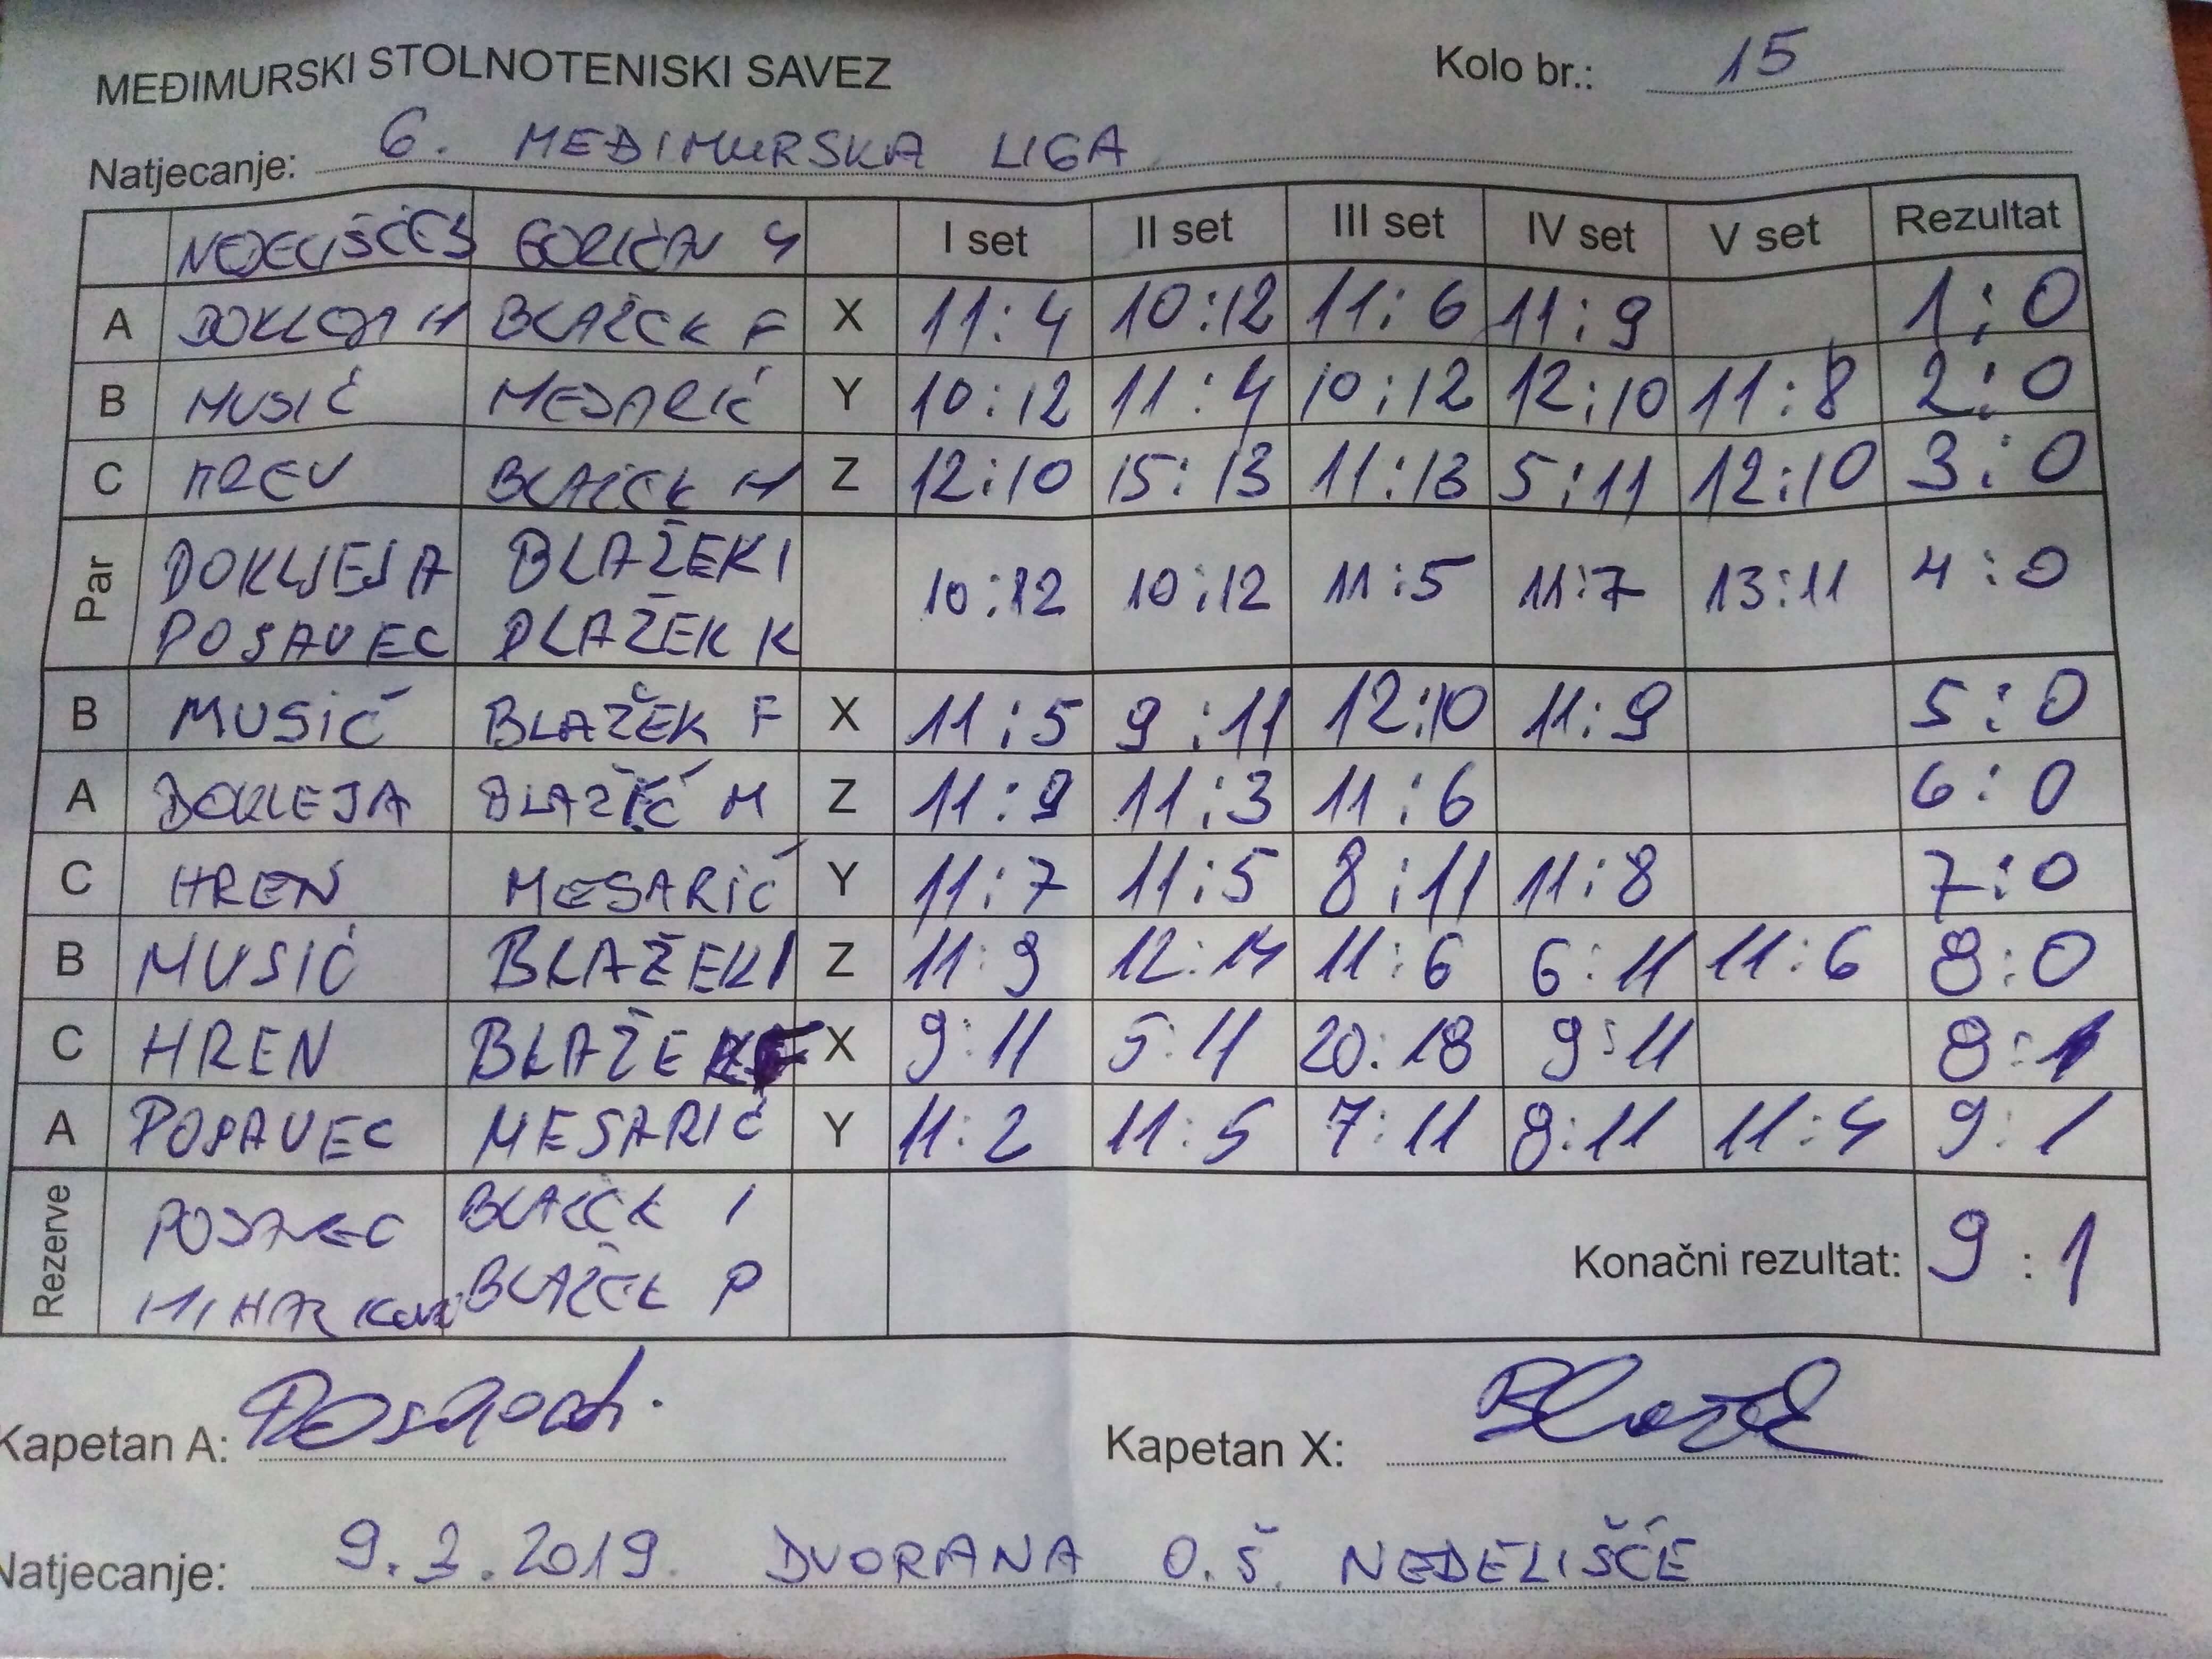 MEĐIMURSKI STOLNOTENISKI SAVEZ Kolo br.: 15
Natjecanje: 6. MEĐIMURSKA LIGA
GORIČAN 4 I set II set III set IV set V set Rezultat
A BLAŽEK F X 11:4 10:12 11:6 11:9 1:0
B MUSIĆ MESARIĆ Y 10:12 11:4 10:12 12:10 11:8 2:0
C HREN BLAŽEK M Z 12:10 15:13 11:13 5:11 12:10 3:0
Par DOKLEJA BLAŽEK I 10:12 10:12 11:5 11:7 13:11 4:0
POSAVEC BLAŽEK K
B MUSIĆ BLAŽEK F X 11:5 9:11 12:10 11:9 5:0
A DOKLEJA M Z 11:9 11:3 11:6 6:0
C HREN MESARIĆ Y 11:7 11:5 8:11 11:8 7:0
B MUSIĆ BLAŽEK I Z 11:9 12:14 11:6 6:11 11:6 8:0
C HREN BLAŽEK F X 9:11 5:11 20:18 9:11 8:1
A POSAVEC MESARIĆ Y 11:2 11:5 7:11 8:11 11:4 9:1
Rezerve POSAVEC BLAŽEK I
BLAŽEK P
Konačni rezultat: 9:1
Kapetan A: Kapetan X:
Natjecanje: 9.3.2019. DVORANA O.Š. NEDELIŠĆE